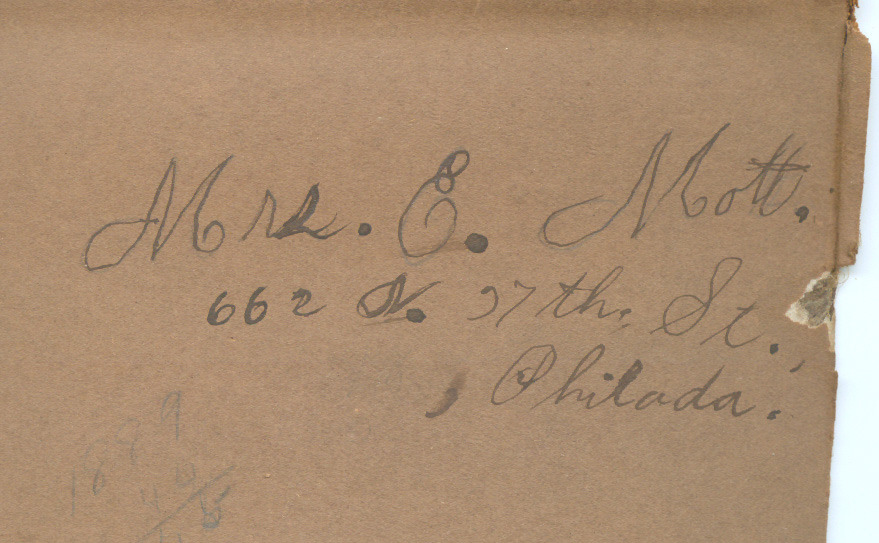 Mrs. E. Mott.
662 N. 37th. St.,
Philada.
1889